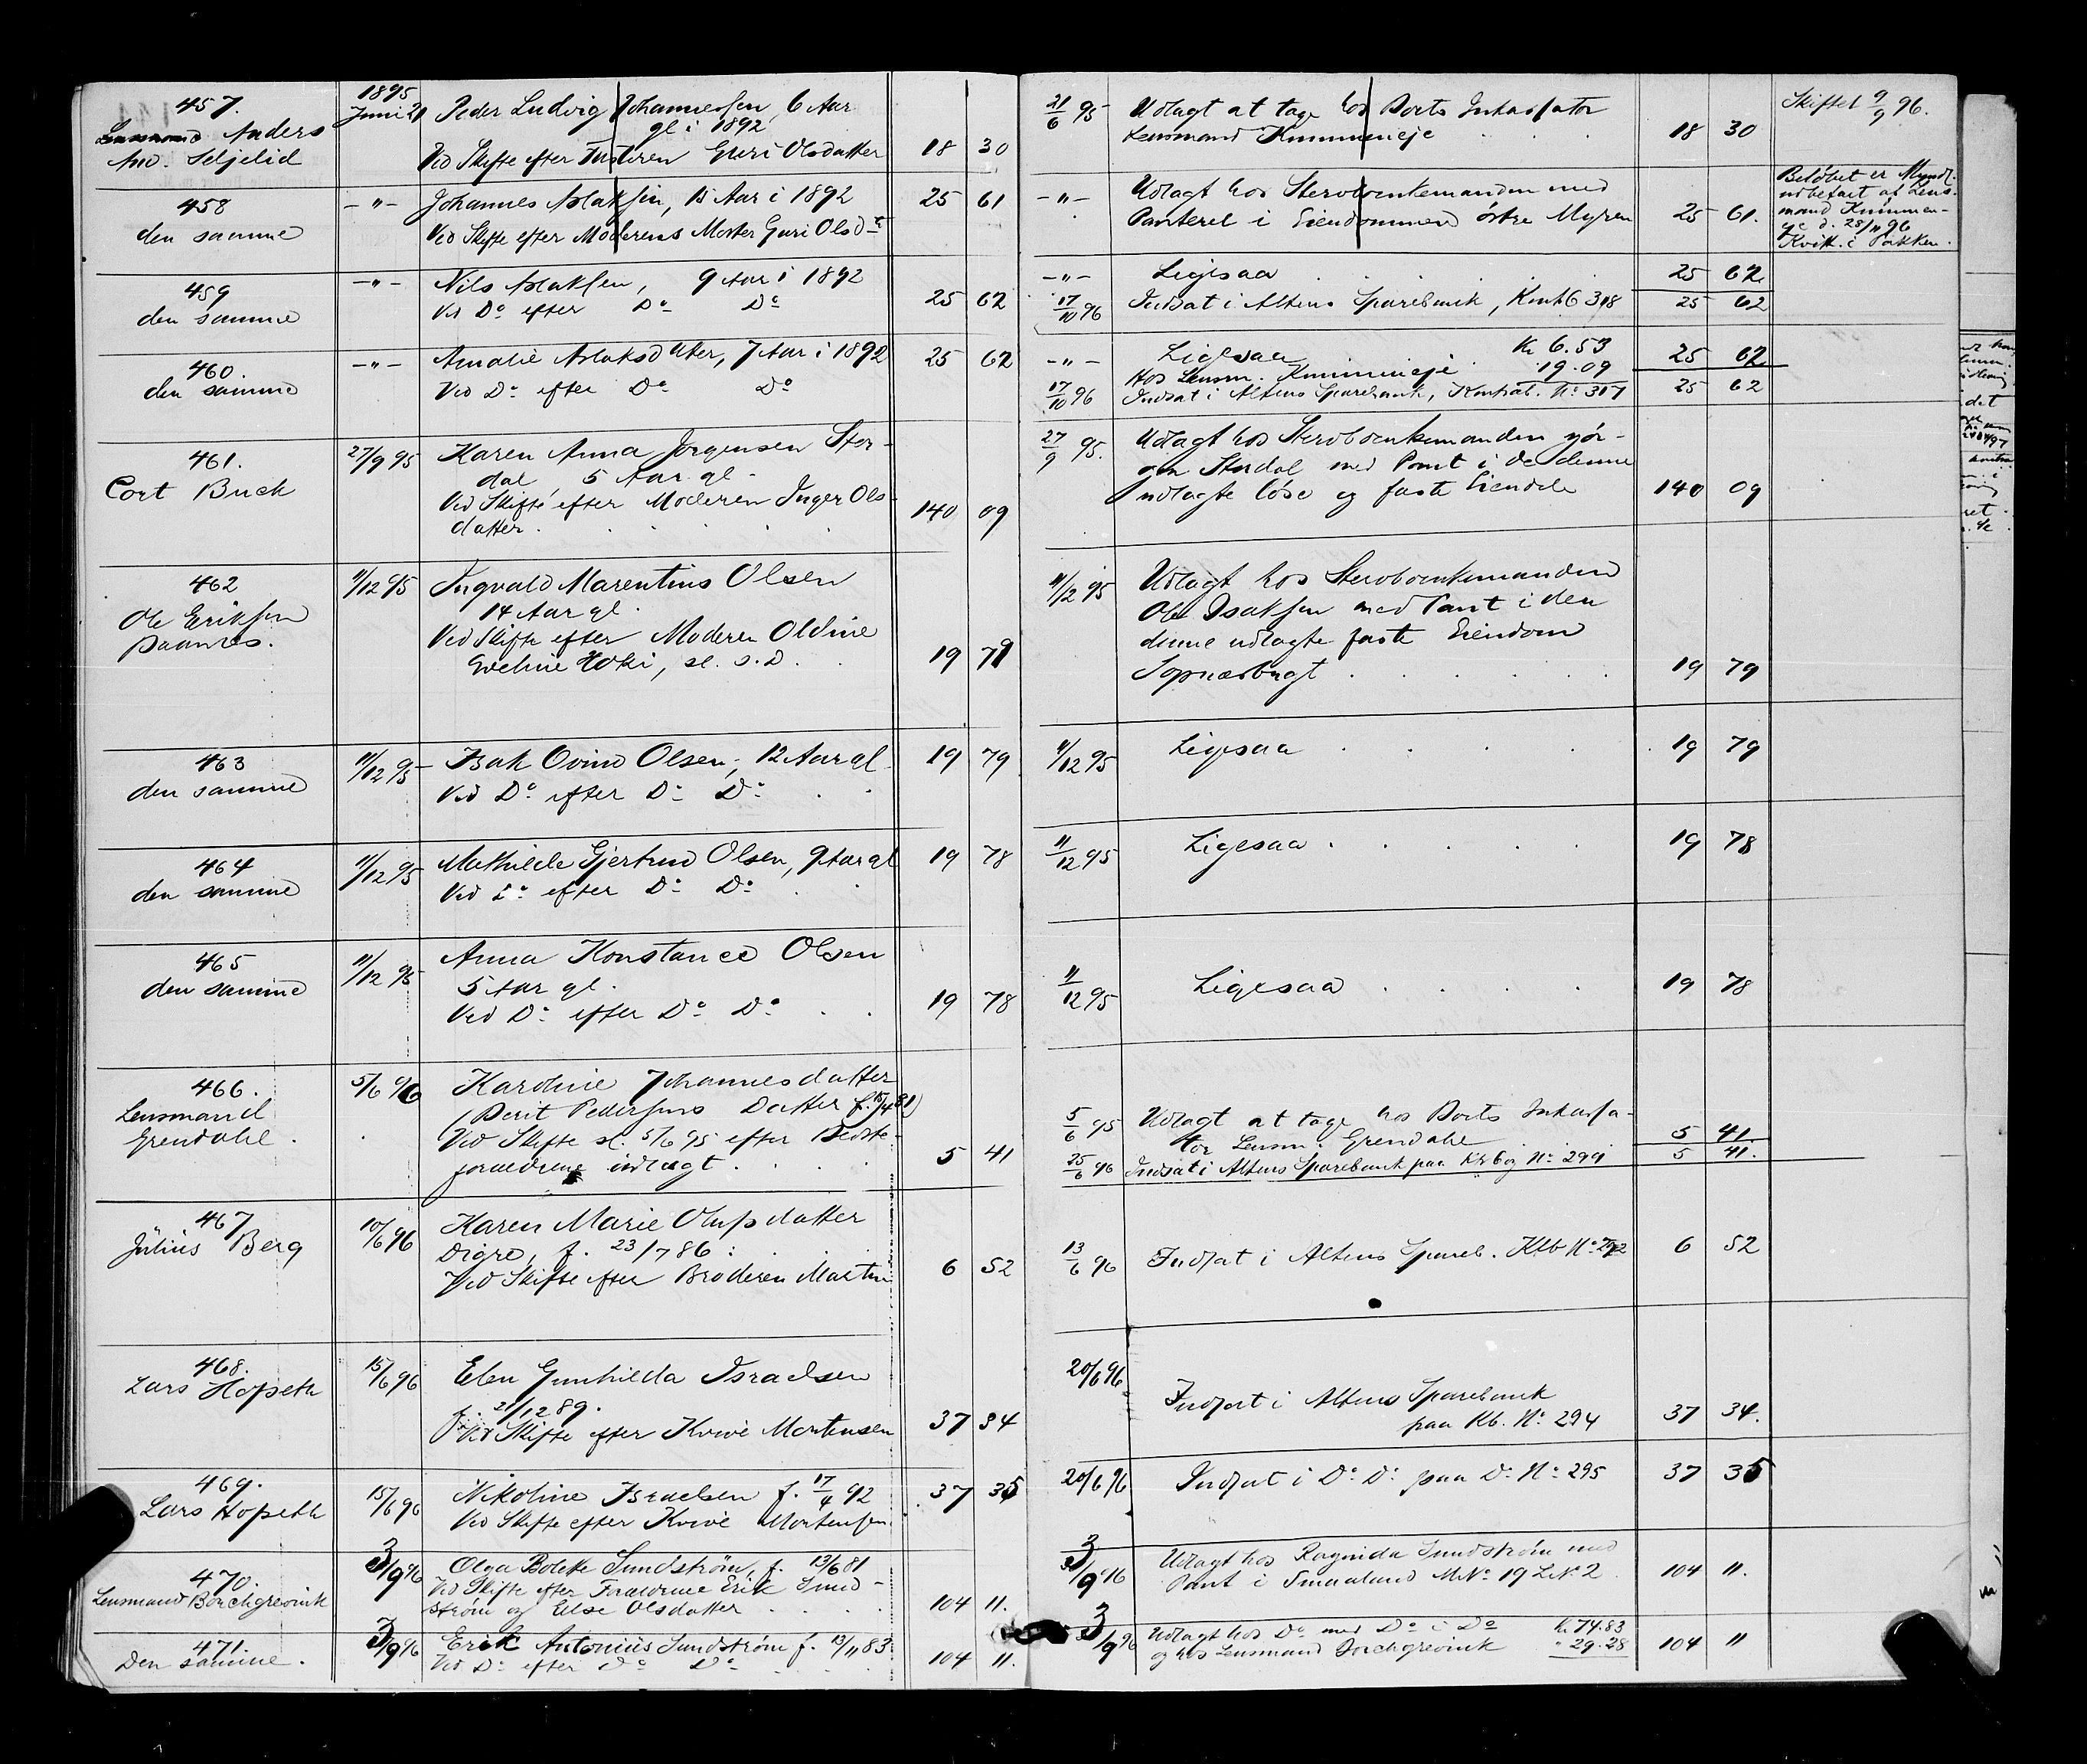 457.
Anders
And. Seljelid
1895
Juni 21
Peder Ludvig Johannessen, 6 Aar
gl. i 1892
Ved Skifte efter Guri Olsdatter
18 30
21/6 95
Udlagt at tage hos Boets Inkassator
Lensmand Kummeneje
18 30
Skiftet 9/9 96.
458
den samme
-"-
Johannes Aslaksen, 15 Aar i 1892
Ved Skifte efter Moderens Moster Guri Olsdtr
25 61
-"-
Udlagt hos Stervboenkemanden med
Panteret i Eiendommen østre Myren
25 61.
Beløbet er Myndl.
udbetalt af Lens-
mand Kummen-
eje d. 28/11 96
Kvitt. i Pakken.
459
den samme
-"-
Nils Aslaksen, 9 Aar i 1892
Ved Do efter Do Do
25 62
-"-
Ligesaa
25 62
17/10 96
Indsat i Altens Sparebank, Kont 6 308
25 62
460.
den samme
-"-
Amalie Aslaksdatter, 7 Aar i 1892
Ved Do efter Do Do
25 62
-"-
Ligesaa Kr 6.53
Hos Lensm. Kummeneje 19.09
25 62
17/10 96
Indsat i Altens Sparebank, No 307
25 62
461.
Cort Buck
27/9 95
Karen Anna Jørgensen Stor-
dal 5 Aar gl.
Ved Skifte efter Moderen Inger Ols-
datter.
140 09
27/9 95.
Udlagt hos Stervboenkemanden Jør-
gen Stordal med Pant i de denne
udlagte løse og faste Eiendele
140 09
462
Ole Eriksen
11/12 95
Ingvald Marentius Olsen
14 Aar gl.
Ved Skifte efter Moderen Oldine
Eveline, sl. s.D.
19 79
11/12 95
Udlagt hos Stervboenkemanden
Ole Isaksen med Pant i den
denne udlagte faste Eiendom
Sopnæsbugt
19 79
463
den samme
11/12 95
Isak Ovind Olsen, 12 Aar gl
Ved Do efter Do Do
19 79
11/12 95
Ligesaa
19 79
464
den samme
11/12 95
Mathilde Gjertrud Olsen, 9 Aar gl
Ved Do efter Do Do
19 78
11/12 95
Ligesaa
19 78
465
den samme
11/12 95
Anna Konstance Olsen
5 Aar gl.
Ved Do efter Do Do
19 78
11/12 95
Ligesaa
19 78
466.
Lensmand
Grendahl.
5/6 96
Karoline Johannesdatter
(Berit Pedersens Datter f. 15/4 81)
Ved Skifte sl. 5/6 95 efter Bedste-
forældrene indlagt
5 41
5/6 95
Udlagt at tage hos Boets Inkassa-
tor Lensm. Grendahl
5 41
25/6 96
Indsat i Altens Sparebank paa No 299
5 41.
467
Julius Berg
10/6 96
Karen Marie Olufsdatter
Digre, f. 23/7 86
Ved Skifte efter Broderen Martin
6 52
13/6 96
Indsat i Altens Spareb. Ktb No 292
6 52
468.
Lars Hopseth
15/6 96
Elen Gunhilda Israelsen
f. 21/12 89.
Ved Skifte efter Mortensen
37 34
20/6 96
Indsat i Altens Sparebank
paa Kb. No 294
37 34.
469.
Lars Hopseth
15/6 96
Nikoline Israelsen f. 17/4 92
Ved Skifte efter Mortensen
37 35
20/6 96
Indsat i Do Do paa Do No 295
37 35
470.
Lensmand Borchgrevink
3/9 96
Olga Bolette Sundstrøm, f. 13/6 81
Ved Skifte efter Forældrene Erik Sund-
strøm og Else Olsdatter
104 11.
3/9 96
Udlagt hos Ragnida Sundstrøm med
Pant i Smaaland MNo 19 LNo 2
104 11.
471.
Den samme.
3/9 96
Erik Antonius Sundstrøm f. 13/11 83
Ved Do efter Do Do
104 11.
3/9 96
Udlagt hos Do med Do i Do Kr 74.83
og hos Lensmand Borchgrevink " 29.28
104 11